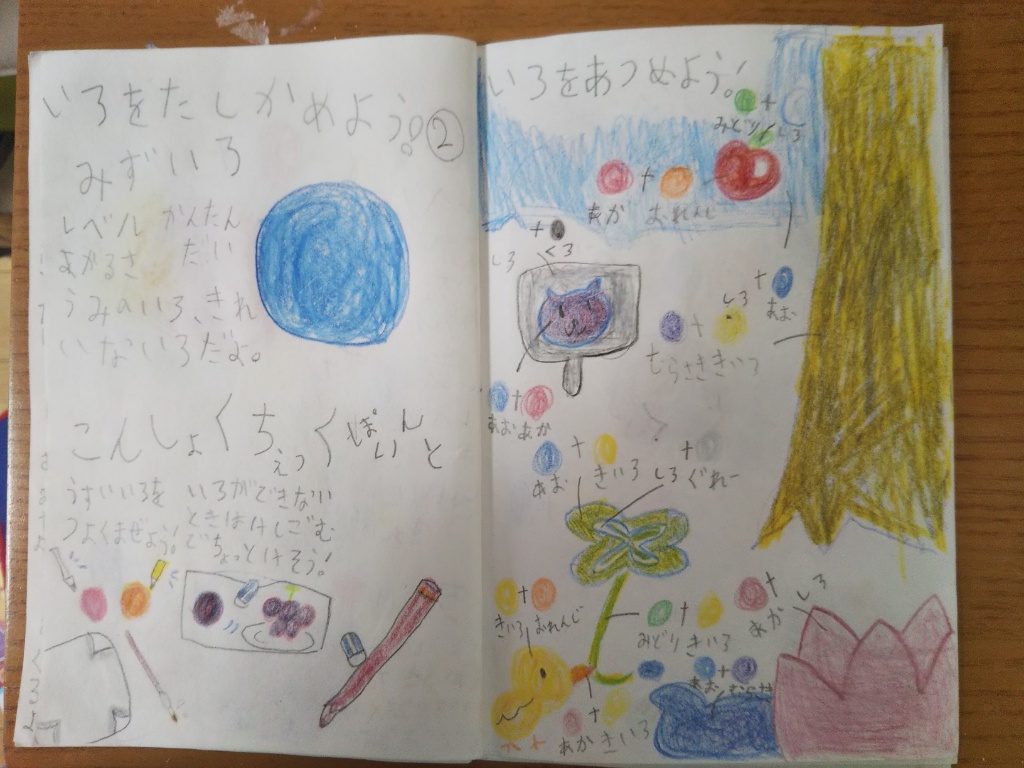 いろをたしかめよう!②
みずいろ
レベル かんたん
あかるさ だい
うみのいろ、きれ
いないろだよ。
こんしょくちぇっくぽいんと
うすいいろを
つよくまぜよう!
いろができない
ときはけしごむ
でちょっとけそう!
いろをあつめよう!
+
みどり しろ
+
あか おれんじ
+
しろ くろ
+
あお
+
しろ
むらさききいろ
+
あおあか
+ +
あお きいろ しろ ぐれー
+
きいろ おれんじ
+
みどり きいろ
+
あか しろ
+
あお むらさき
+
あか きいろ